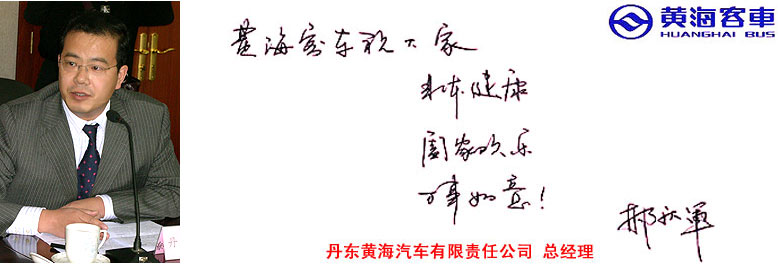 黄海客車
HUANGHAI BUS
黄海客车祝大家
身体健康
阖家欢乐
万事如意!
郝庆军
丹东黄海汽车有限责任公司 总经理
丹